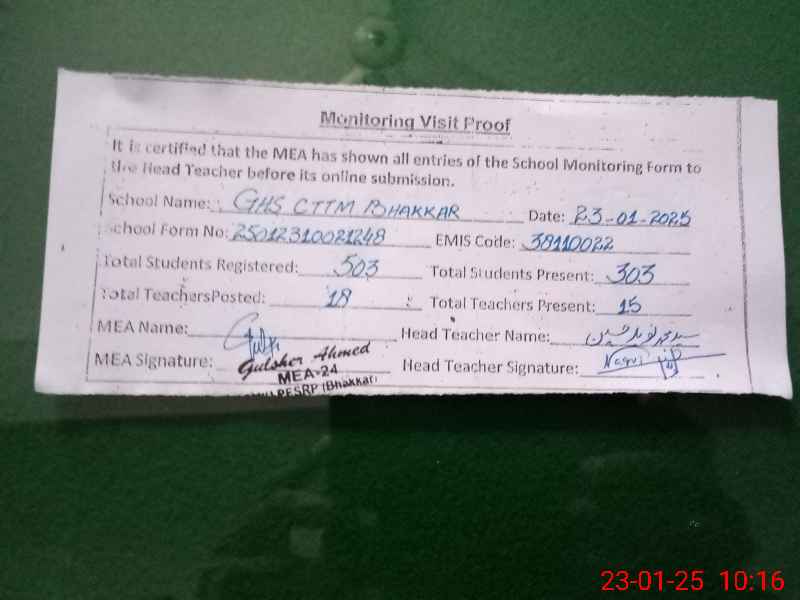 Monitoring Visit Proof
It is certified that the MEA has shown all entries of the School Monitoring Form to
the Head Teacher before its online submission.
School Name: GHS CTTM BHAKKAR Date: 23-01-2025
School Form No: 25012310021248 EMIS Code: 38110022
Total Students Registered: 503 Total Students Present: 303
Total TeachersPosted: 18 Total Teachers Present: 15
MEA Name: Head Teacher Name: سید محمد نوید حسین
MEA Signature: Gulsher Ahmed Head Teacher Signature: Naqvi
MEA-24
PESRP (Bhakkar)
23-01-25 10:16